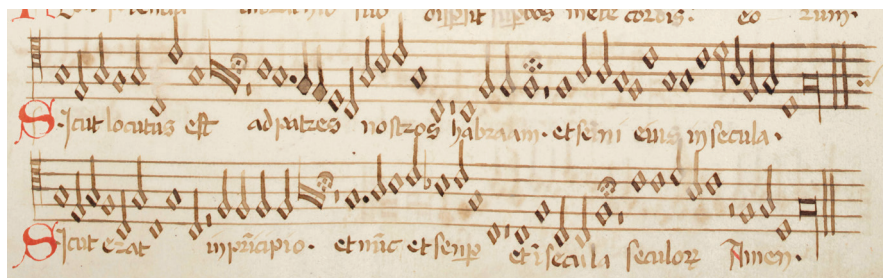 dispsit supbos mete cordis. eo rum.
Sicut locutus est ad patres nostros habraam. et semi eius in secula.
Sicut erat in pricipio. et nuc et senp et i secula seculorꝝ Amen.